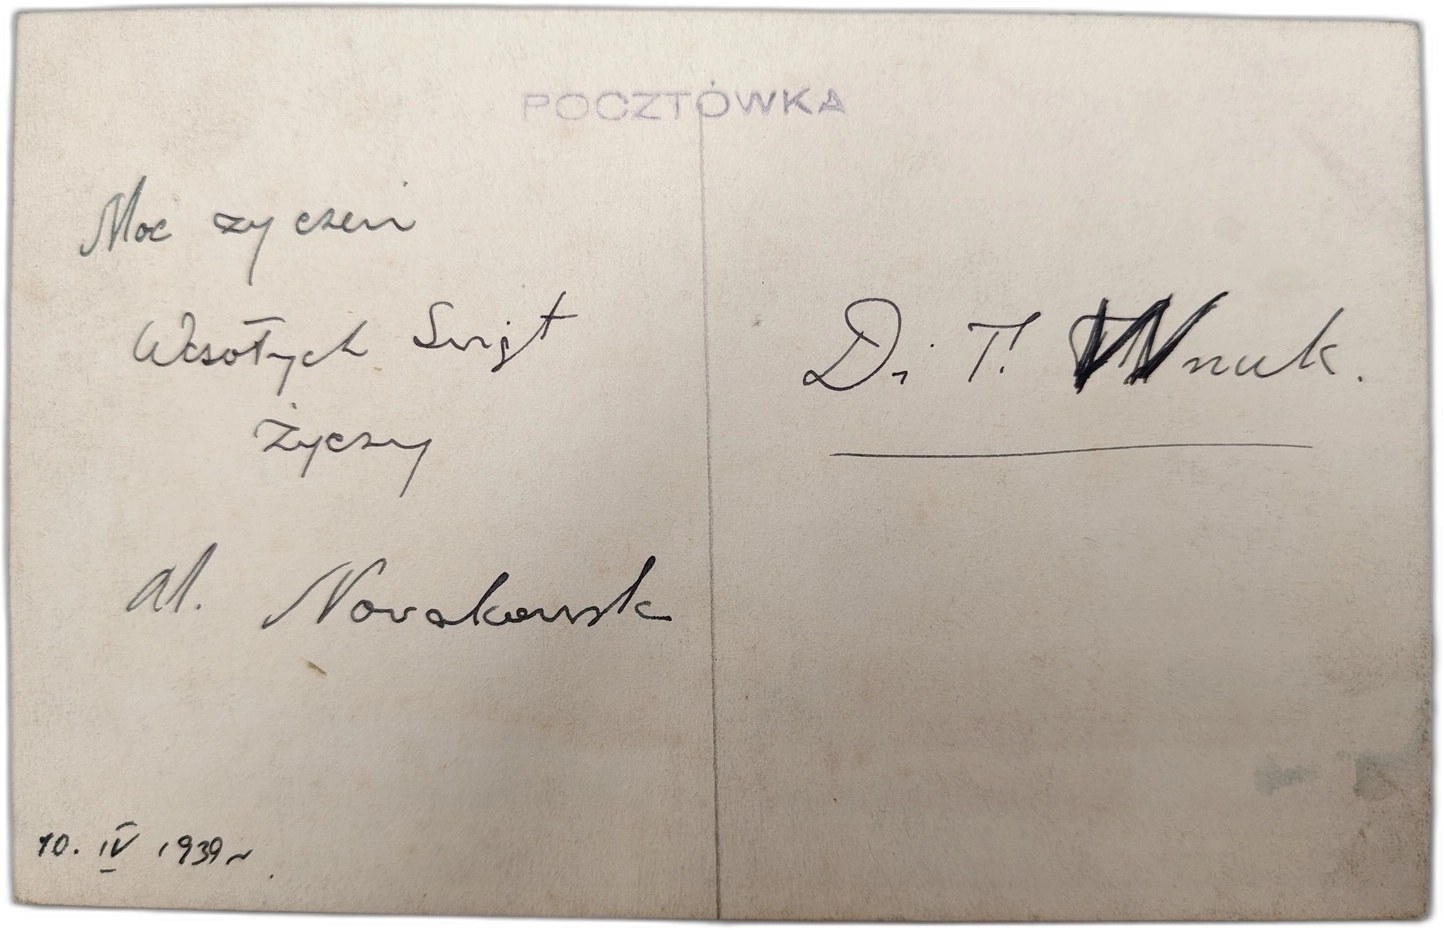 POCZTÓWKA
Moc życzeń
Wesołych Świąt
Życzy
Al. Nowakowsk
10. IV 1939 r.
Dr T. Wnuk.